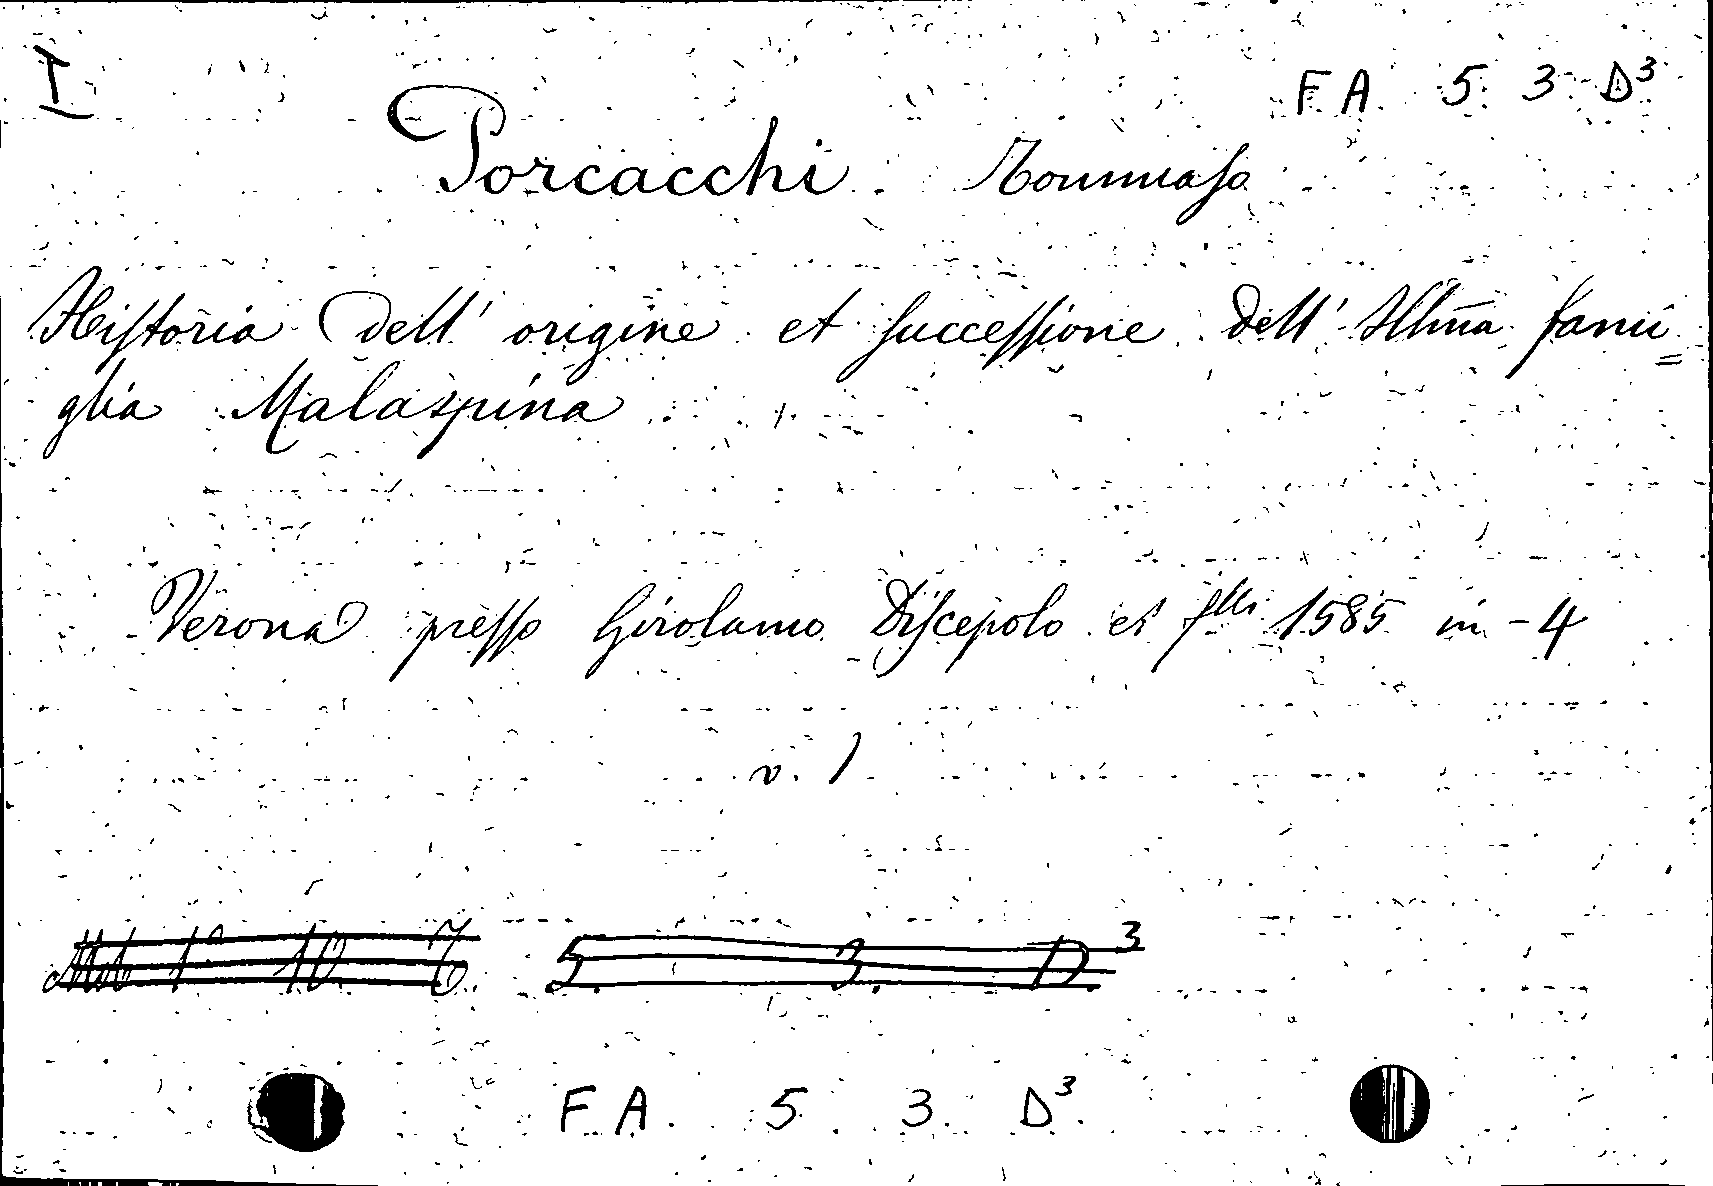 I
F A 5 3 D³
Porcacchi Tommaso
Historia dell' origine et successione dell' Illm̃a fami=
glia Malaspina
Verona presso Girolamo Discepolo et flli 1585 in-4
v. 1
5. 3. D.³
F A 5 3 D³